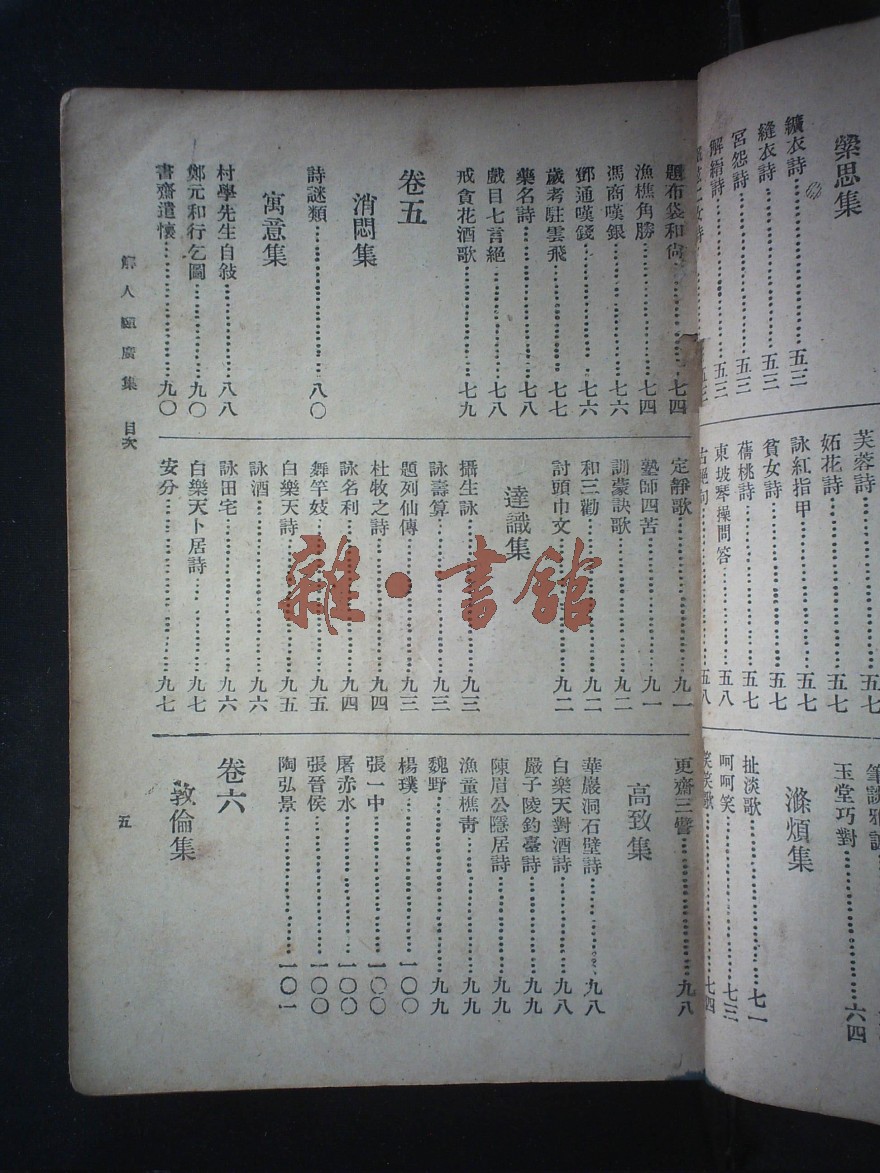 縈思集
纊衣詩……五三
縫衣詩……五三
宮怨詩……五三
解縉詩……五三
芙蓉詩
妬花詩……五七
詠紅指甲……五七
貧女詩……五七
蒨桃詩……五七
東坡琴操問答……五八
古絕句……五八
玉堂巧對……六四
滌煩集
扯淡歌……七一
呵呵笑……七三
笑笑歌……七四
題布袋和尙……七四
漁樵角勝……七四
馮商嘆銀……七六
鄧通嘆錢……七六
歲考駐雲飛……七七
藥名詩……七八
戲目七言絕……七八
戒貪花酒歌……七九
卷五
消悶集
詩謎類……八〇
寓意集
村學先生自敍……八八
鄭元和行乞圖……九〇
書齋遣懷……九〇
定靜歌……九一
塾師四苦……九一
訓蒙訣歌……九二
和三勸……九二
討頭巾文……九二
達識集
攝生詠……九三
詠壽算……九三
題列仙傳……九三
杜牧之詩……九四
詠名利……九四
舞竿妓……九五
白樂天詩……九五
詠酒……九六
詠田宅……九六
白樂天卜居詩……九七
安分……九七
更齋三警……九八
高致集
華巖洞石壁詩……九八
白樂天對酒詩……九八
嚴子陵釣臺詩……九九
陳眉公隱居詩……九九
漁童樵靑……九九
魏野……九九
楊璞……一〇〇
張一中……一〇〇
屠赤水……一〇〇
張晉侯……一〇〇
陶弘景……一〇一
卷六
敦倫集
解人頤廣集 目次
五
雜·書館